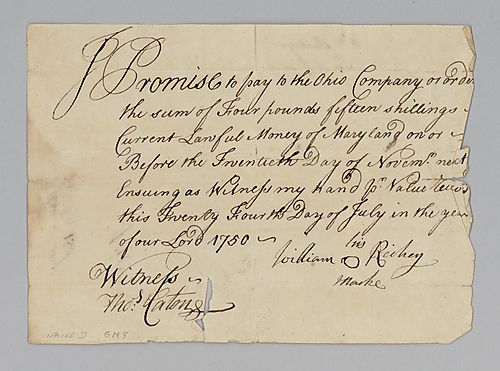 I Promise to pay to the Ohio Company or orde
the sum of Four pounds fifteen shillings
Current Lawful Money of Maryland on or
Before the Twentieth Day of Novemr next
Ensuing as Witness my hand Value
this Twenty Fourth Day of July in the year
of our Lord 1750
his
William Richey
Marke
Witness
Thos. Eaton
GMS